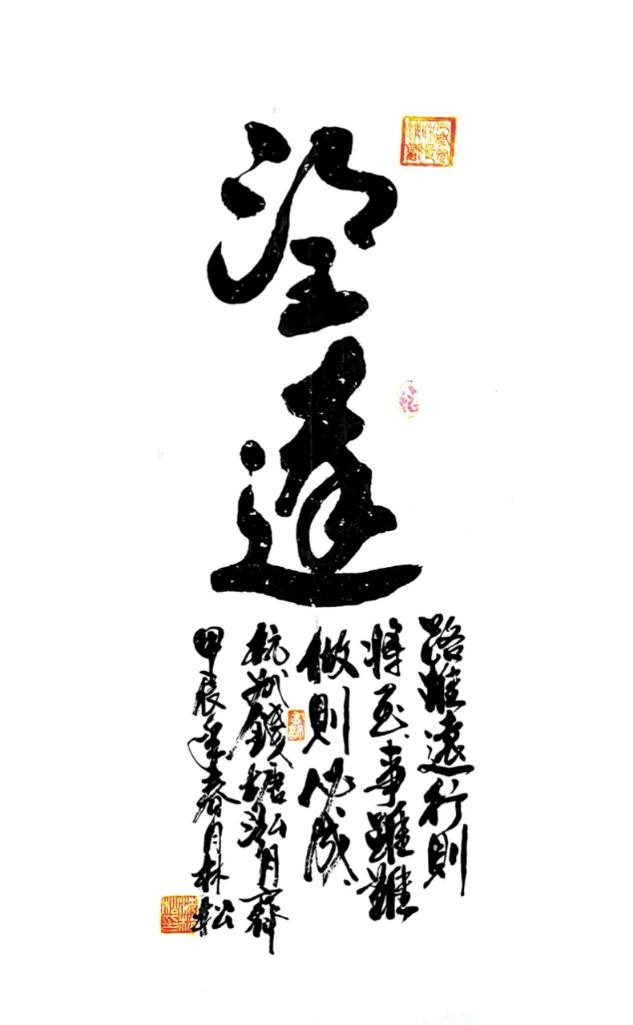 望遠
路雖遠行則
將至事雖難
做則必成
杭州錢塘弘月齋
甲辰年春月林松